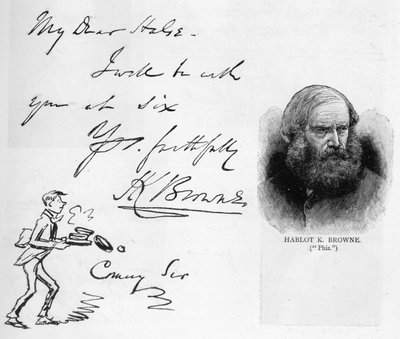 My Dear Halse -
I will be with
you at six
Yrs. faithfully
K Browne
Coming Sir
HABLOT K. BROWNE.
("Phiz.")